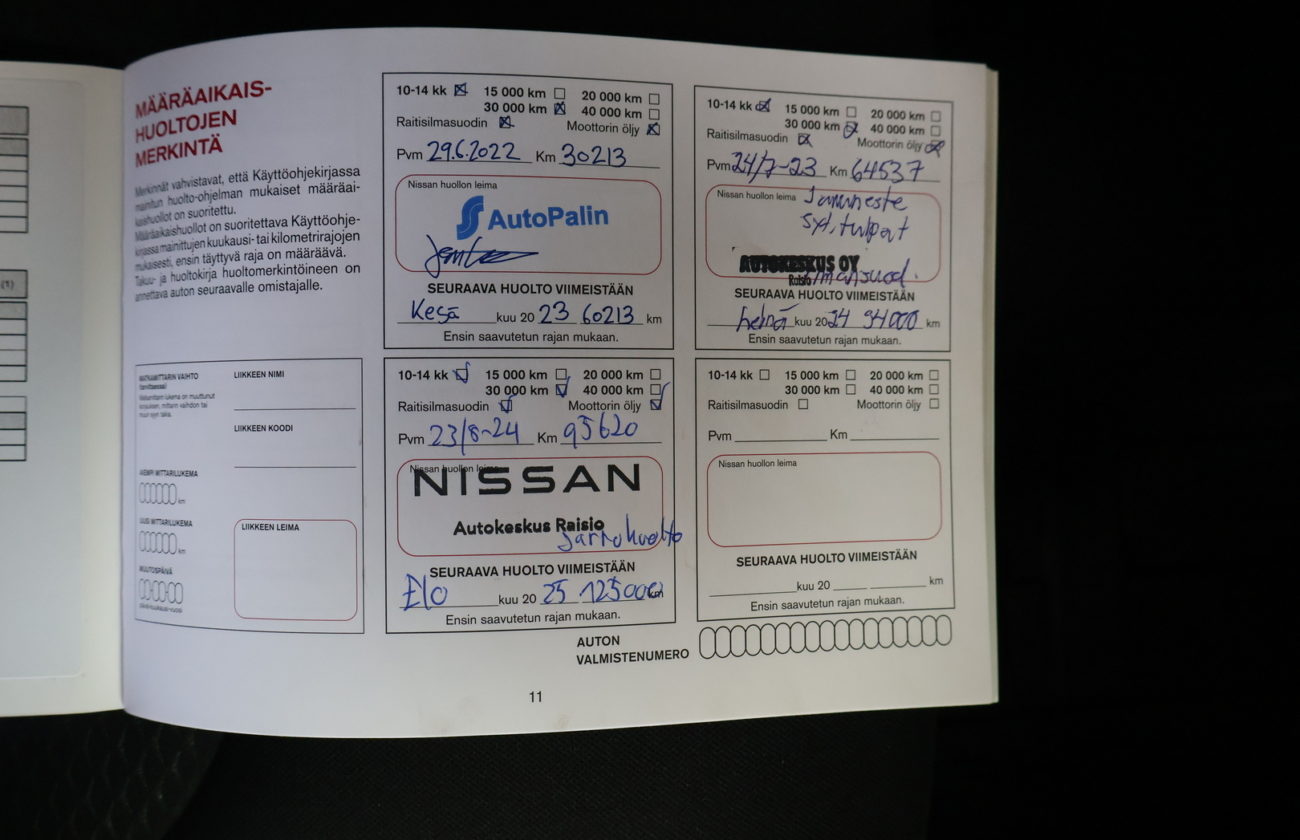 MÄÄRÄAIKAIS-
HUOLTOJEN
MERKINTÄ
Merkinnät vahvistavat, että Käyttöohjekirjassa
mainitun huolto-ohjelman mukaiset määräai-
kaishuollot on suoritettu.
Määräaikaishuollot on suoritettava Käyttöohje-
kirjassa mainittujen kuukausi- tai kilometrirajojen
mukaisesti, ensin täyttyvä raja on määräävä.
Takuu- ja huoltokirja huoltomerkintöineen on
annettava auton seuraavalle omistajalle.
MATKAMITTARIN VAIHTO
(tarvittaessa)
Matkamittarin lukema on muuttunut
korjauksen, mittarin vaihdon tai
muun syyn takia.
AIEMPI MITTARILUKEMA
km
UUSI MITTARILUKEMA
km
MUUTOSPÄIVÄ
LIIKKEEN NIMI
LIIKKEEN KOODI
LIIKKEEN LEIMA
10-14 kk 15 000 km 20 000 km
30 000 km 40 000 km
Raitisilmasuodin Moottorin öljy
Pvm 29.6.2022 Km 30213
Nissan huollon leima
AutoPalin
SEURAAVA HUOLTO VIIMEISTÄÄN
Kesä kuu 20 23 60213 km
Ensin saavutetun rajan mukaan.
10-14 kk 15 000 km 20 000 km
30 000 km 40 000 km
Raitisilmasuodin Moottorin öljy
Pvm 24/7-23 Km 64537
Nissan huollon leima Jarruneste
syt.tulpat
AUTOKESKUS OY
Raisio ilmansuod.
SEURAAVA HUOLTO VIIMEISTÄÄN
heinä kuu 20 24 94000 km
Ensin saavutetun rajan mukaan.
10-14 kk 15 000 km 20 000 km
30 000 km 40 000 km
Raitisilmasuodin Moottorin öljy
Pvm 23/8-24 Km 95620
Nissan huollon leima
NISSAN
Autokeskus Raisio
Jarruhuolto
SEURAAVA HUOLTO VIIMEISTÄÄN
Elo kuu 20 25 125000 km
Ensin saavutetun rajan mukaan.
10-14 kk 15 000 km 20 000 km
30 000 km 40 000 km
Raitisilmasuodin Moottorin öljy
Pvm Km
Nissan huollon leima
SEURAAVA HUOLTO VIIMEISTÄÄN
kuu 20 km
Ensin saavutetun rajan mukaan.
AUTON
VALMISTENUMERO
11
(1)